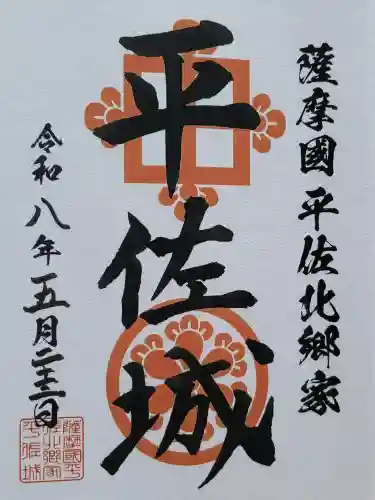 薩摩國平佐北郷家
平佐城
令和八年五月二十二日
薩摩國平
佐北郷家
平佐城